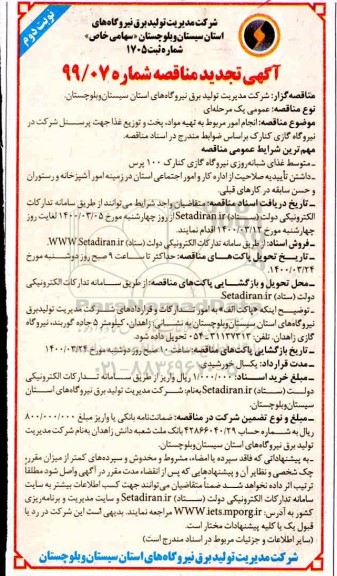 نوبت دوم
شرکت مدیریت تولید برق نیروگاه‌های
استان سیستان وبلوچستان «سهامی خاص»
شماره ثبت ۱۷۰۵
آگهی تجدید مناقصه شماره ۹۹/۰۷
مناقصه‌گزار: شرکت مدیریت تولید برق نیروگاه‌های استان سیستان‌وبلوچستان.
نوع مناقصه: عمومی یک مرحله‌ای
موضوع مناقصه: انجام امور مربوط به تهیه مواد، پخت و توزیع غذا جهت پرسنل شرکت در
نیروگاه گازی کنارک براساس ضوابط مندرج در اسناد مناقصه.
مهم‌ترین شرایط عمومی مناقصه
ـ متوسط غذای شبانه‌روزی نیروگاه گازی کنارک ۱۰۰ پرس
ـ داشتن تأییدیه صلاحیت از اداره کار و امور اجتماعی استان در زمینه امور آشپزخانه و رستوران
و حسن سابقه در کارهای قبلی.
ـ تاریخ دریافت اسناد مناقصه: متقاضیان واجد شرایط می‌توانند از طریق سامانه تدارکات
الکترونیکی دولت (ستاد) Setadiran.ir از روز چهارشنبه مورخ ۱۴۰۰/۰۳/۰۵ لغایت روز
چهارشنبه مورخ ۱۴۰۰/۰۳/۱۲ اقدام نمایند.
ـ فروش اسناد: از طریق سامانه تدارکات الکترونیکی دولت (ستاد) WWW.Setadiran.ir
ـ تاریخ تحویل پاکت‌های مناقصه: حداکثر تا ساعت ۹ صبح روز دوشنبه مورخ
۱۴۰۰/۰۳/۲۴.
ـ محل تحویل و بازگشایی پاکت‌های مناقصه: از طریق سامانه تدارکات الکترونیکی
دولت (ستاد) Setadiran.ir
ـ توضیح اینکه «پاکت الف» به امور تدارکات و قراردادهای شرکت مدیریت تولیدبرق
نیروگاه‌های استان سیستان‌وبلوچستان به نشانی: زاهدان، کیلومتر ۵ جاده گوربند، نیروگاه
گازی زاهدان. تلفن: ۳۱۱۳۷۲۱۳-۰۵۴ تحویل داده شود.
ـ تاریخ بازگشایی پاکت‌های مناقصه: ساعت ۱۰ صبح روز دوشنبه مورخ ۱۴۰۰/۰۳/۲۴
ـ مدت قرارداد: یکسال خورشیدی
ـ مبلغ خرید اسناد: ۱/۰۰۰/۰۰۰ ریال واریز از طریق سامانه تدارکات الکترونیکی
دولت (ستاد) Setadiran.ir به‌نام: شرکت مدیریت تولید برق نیروگاه‌های استان
سیستان‌وبلوچستان.
ـ مبلغ و نوع تضمین شرکت در مناقصه: ضمانت‌نامه بانکی یا واریز مبلغ ۸۰۰/۰۰۰/۰۰۰
ریال به شماره حساب ۴۲۸۶۶۰۴۰/۲۹ بانک ملت شعبه دانش زاهدان به‌نام شرکت مدیریت
تولید برق نیروگاه‌های استان سیستان‌وبلوچستان.
ـ به پیشنهاداتی که فاقد سپرده یا امضاء، مشروط و مخدوش و سپرده‌های کمتر از میزان مقرر،
چک شخصی و نظایر آن و پیشنهادهایی که پس از انقضاء مدت مقرر در آگهی واصل شود مطلقاً
ترتیب اثر داده نخواهد شد. ضمناً متقاضیان می‌توانند جهت کسب اطلاعات بیشتر به سایت
سامانه تدارکات الکترونیکی دولت (ستاد) Setadiran.ir و سایت مدیریت و برنامه‌ریزی
کشور به آدرس: WWW.iets.mporg.ir مراجعه نمایند. بدیهی است این شرکت در رد یا
قبول یک یا کلیه پیشنهادات مختار است.
(سایر اطلاعات و جزئیات مربوط در اسناد مندرج است)
شرکت مدیریت تولید برق نیروگاه‌های استان سیستان وبلوچستان